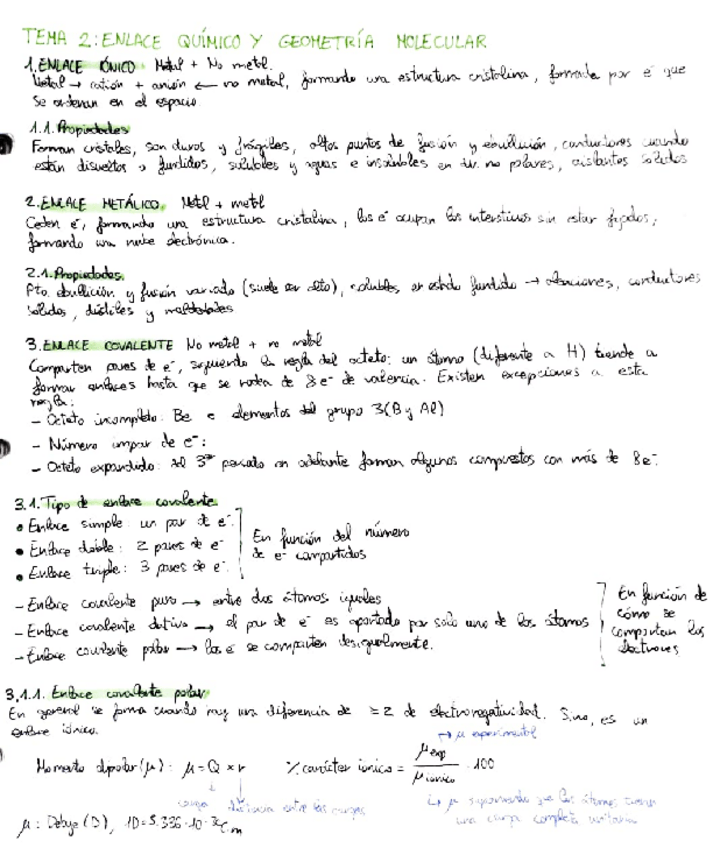 TEMA 2: ENLACE QUÍMICO Y GEOMETRÍA MOLECULAR
1. ENLACE IÓNICO Metal + No metal.
Metal → catión + anión ← no metal, formando una estructura cristalina, formada por e⁻ que
se ordenan en el espacio.
1.1. Propiedades
Forman cristales, son duros y frágiles, altos puntos de fusión y ebullición, conductores cuando
están disueltos o fundidos, solubles y aguas e insolubles en dis. no polares, aislantes solidos
2. ENLACE METÁLICO. Metal + metal
Ceden e⁻, formando una estructura cristalina, los e⁻ ocupan los intersticios sin estar fijados,
formando una nube electrónica.
2.1. Propiedades.
Pto. ebullición y fusión variado (suele ser alto), solubles en estado fundido → aleaciones, conductores
solidos, dúctiles y maleables
3. ENLACE COVALENTE No metal + no metal
Comparten pares de e⁻, siguiendo la regla del octeto: un átomo (diferente a H) tiende a
formar enlaces hasta que se rodea de 8e⁻ de valencia. Existen excepciones a esta
regla:
- Octeto incompleto: Be e elementos del grupo 3 (B y Al)
- Número impar de e⁻:
- Octeto expandido: del 3er periodo en adelante forman algunos compuestos con más de 8e⁻.
3.1. Tipo de enlace covalente
• Enlace simple: un par de e⁻.
• Enlace doble: 2 pares de e⁻
• Enlace triple: 3 pares de e⁻.
En función del número
de e⁻ compartidos
- Enlace covalente puro → entre dos átomos iguales
- Enlace covalente dativo → el par de e⁻ es aportado por solo uno de los átomos
- Enlace covalente polar → los e⁻ se comparten desigualmente.
En función de
cómo se
comportan los
electrones
3.1.1. Enlace covalente polar
En general se forma cuando hay una diferencia de ≤2 de electronegatividad. Sino, es un
enlace iónico.
→ μ experimental
Momento dipolar (μ): μ = Q × r % carácter iónico = μ exp / μ iónico · 100
carga distancia entre las cargas
↳ μ suponiendo que los átomos tienen
una carga completa unitaria
μ: Debye (D), 1D = 3.336·10⁻³⁰ C·m